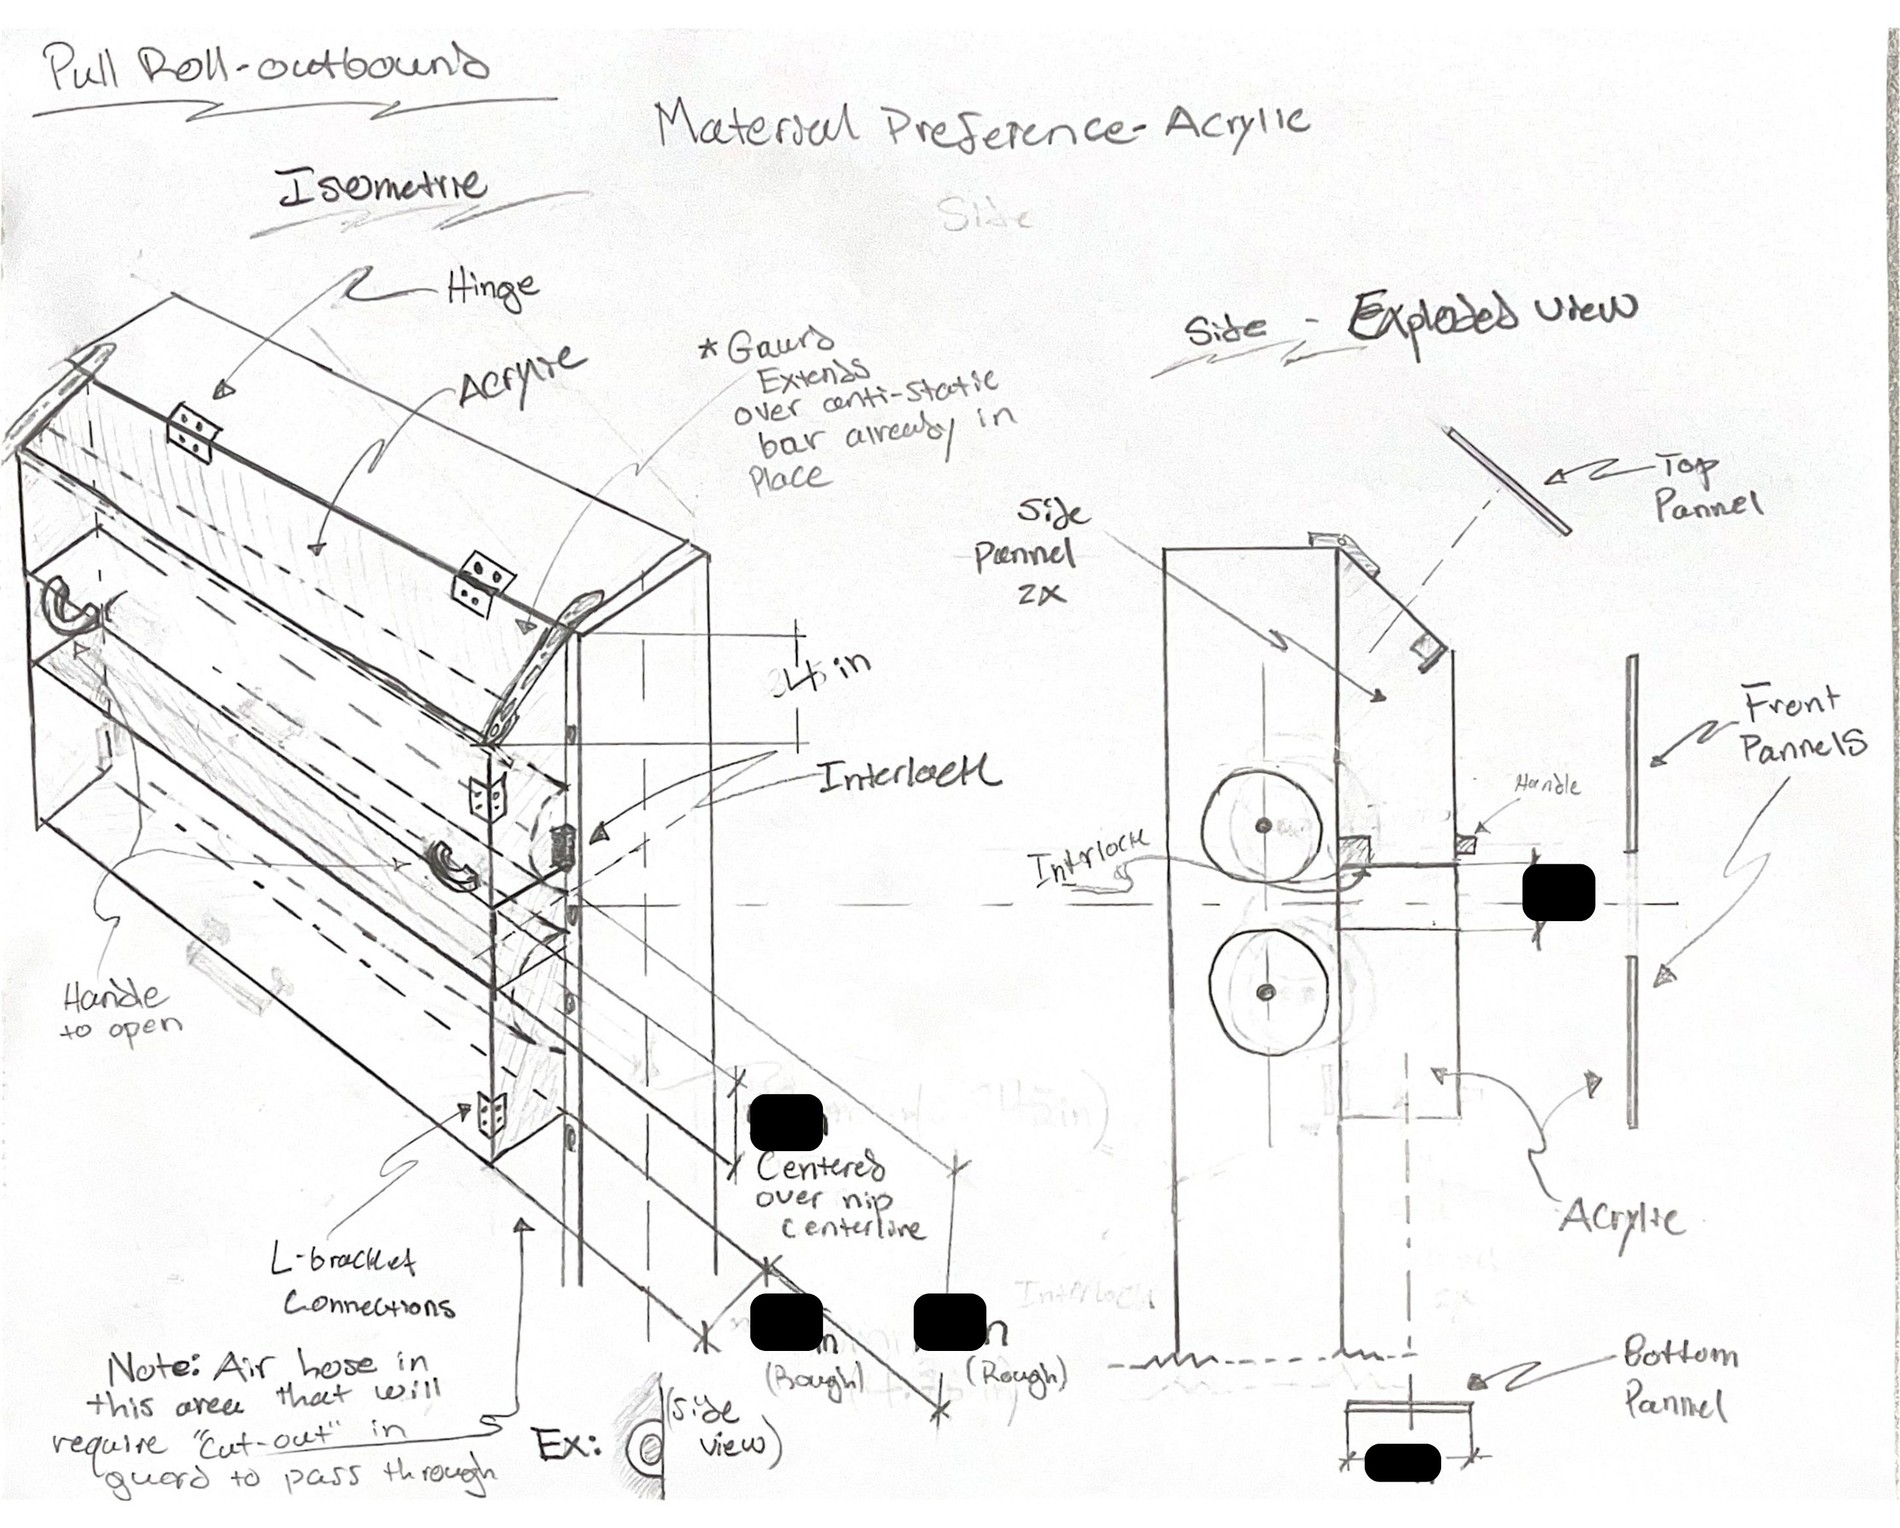 Pull Roll-outbound
Material Preference- Acrylic
Isometric
Side
Hinge
Acrylic
* Gaurd
Extends
over anti-static
bar already in
Place
Side - Exploded view
Top
Pannel
Side
Pannel
2x
in
Front
Pannels
Interlock
Handle
Interlock
Handle
to open
Centered
over nip
centerline
Acrylic
L-bracket
Connections
(Rough)
n
(Rough)
Interlock
2x
Bottom
Pannel
Note: Air hose in
this area that will
require "cut-out" in
guard to pass through
Ex:
(side
view)